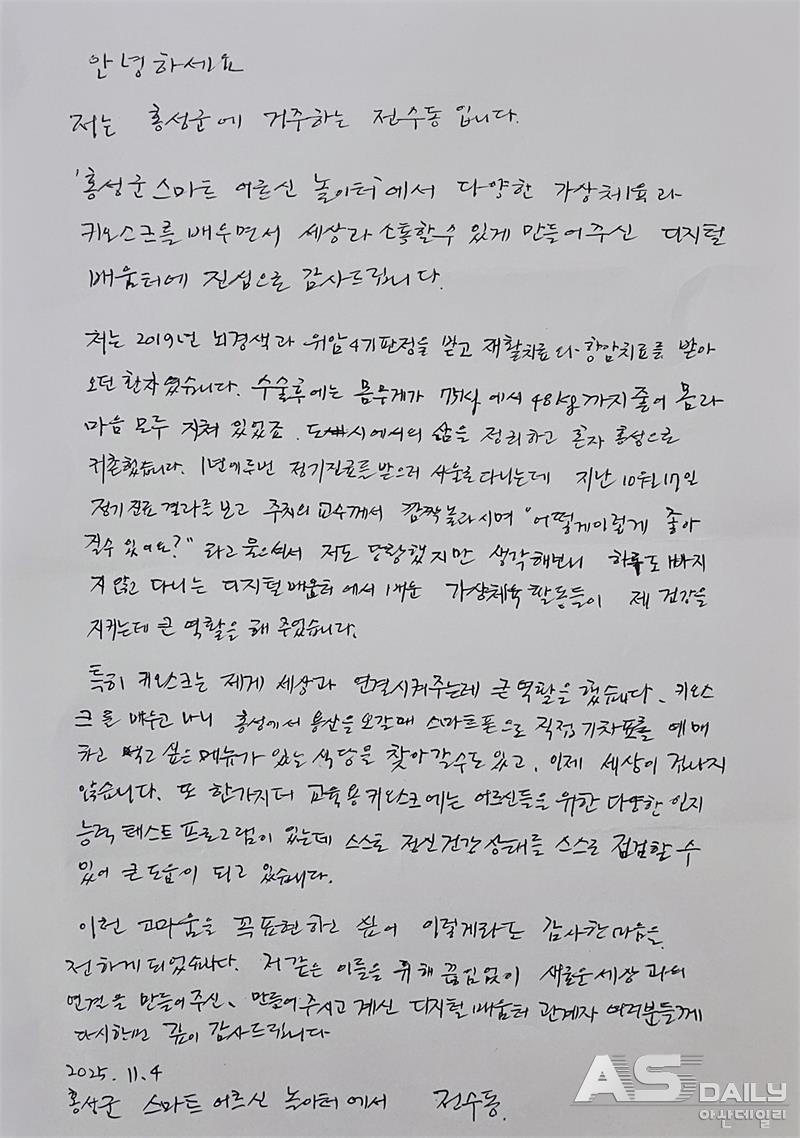 안녕하세요
저는 홍성군에 거주하는 전수동입니다.
'홍성군 스마트 어르신 놀이터'에서 다양한 가상체육과
키오스크를 배우면서 세상과 소통할수 있게 만들어주신 디지털
배움터에 진심으로 감사드립니다.
저는 2019년 뇌경색과 위암4기판정을 받고 재활치료와 항암치료를 받아
오던 환자였습니다. 수술후에는 몸무게가 75kg에서 48kg까지 줄어 몸과
마음 모두 지쳐 있었죠. 도시에서의 삶을 정리하고 혼자 홍성으로
귀촌했습니다. 1년에두번 정기진료를받으러 서울로다니는데 지난 10월17일
정기진료 결과를보고 주치의 교수께서 깜짝놀라시며 "어떻게이렇게 좋아
질수 있어요?" 라고 물으셔서 저도 당황했지만 생각해보니 하루도 빠지
지않고 다니는 디지털배움터에서 배운 가상체육 활동들이 제 건강을
지키는데 큰 역할을 해 주었습니다.
특히 키오스크는 제게 세상과 연결시켜주는데 큰역할을 했습니다. 키오스
크를 배우고 나니 홍성에서 용산을오갈때 스마트폰으로 직접기차표를 예매
하고 먹고 싶은메뉴가 있는 식당을 찾아갈수도있고, 이제 세상이 겁나지
않습니다. 또 한가지더 교육용키오스크에는 어르신들을 위한 다양한 인지
능력 테스트프로그램이 있는데 스스로 정신건강상태를 스스로 점검할 수
있어 큰도움이 되고 있습니다.
이런 고마움을 꼭표현하고 싶어 이렇게라도 감사한마음을
전하게되었습니다. 저같은 이들을 위해 끊임없이 새로운세상과의
연결을 만들어주신, 만들어주시고계신 디지털배움터 관계자 여러분들께
다시한번 깊이 감사드립니다
2025. 11. 4
홍성군 스마트 어르신 놀이터에서 전수동.
AS DAILY
아산데일리